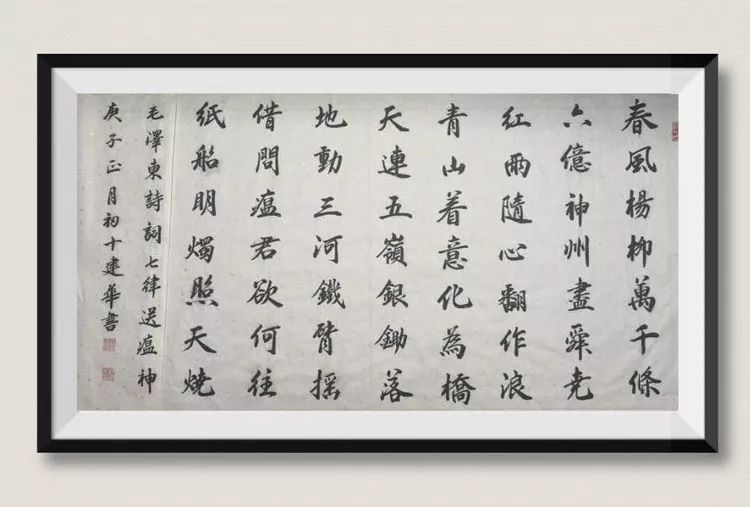 春風楊柳萬千條
六億神州盡舜堯
紅雨隨心翻作浪
青山着意化為橋
天連五嶺銀鋤落
地動三河鐵臂搖
借問瘟君欲何往
紙船明燭照天燒
毛澤東詩詞七律送瘟神
庚子正月初十建華書